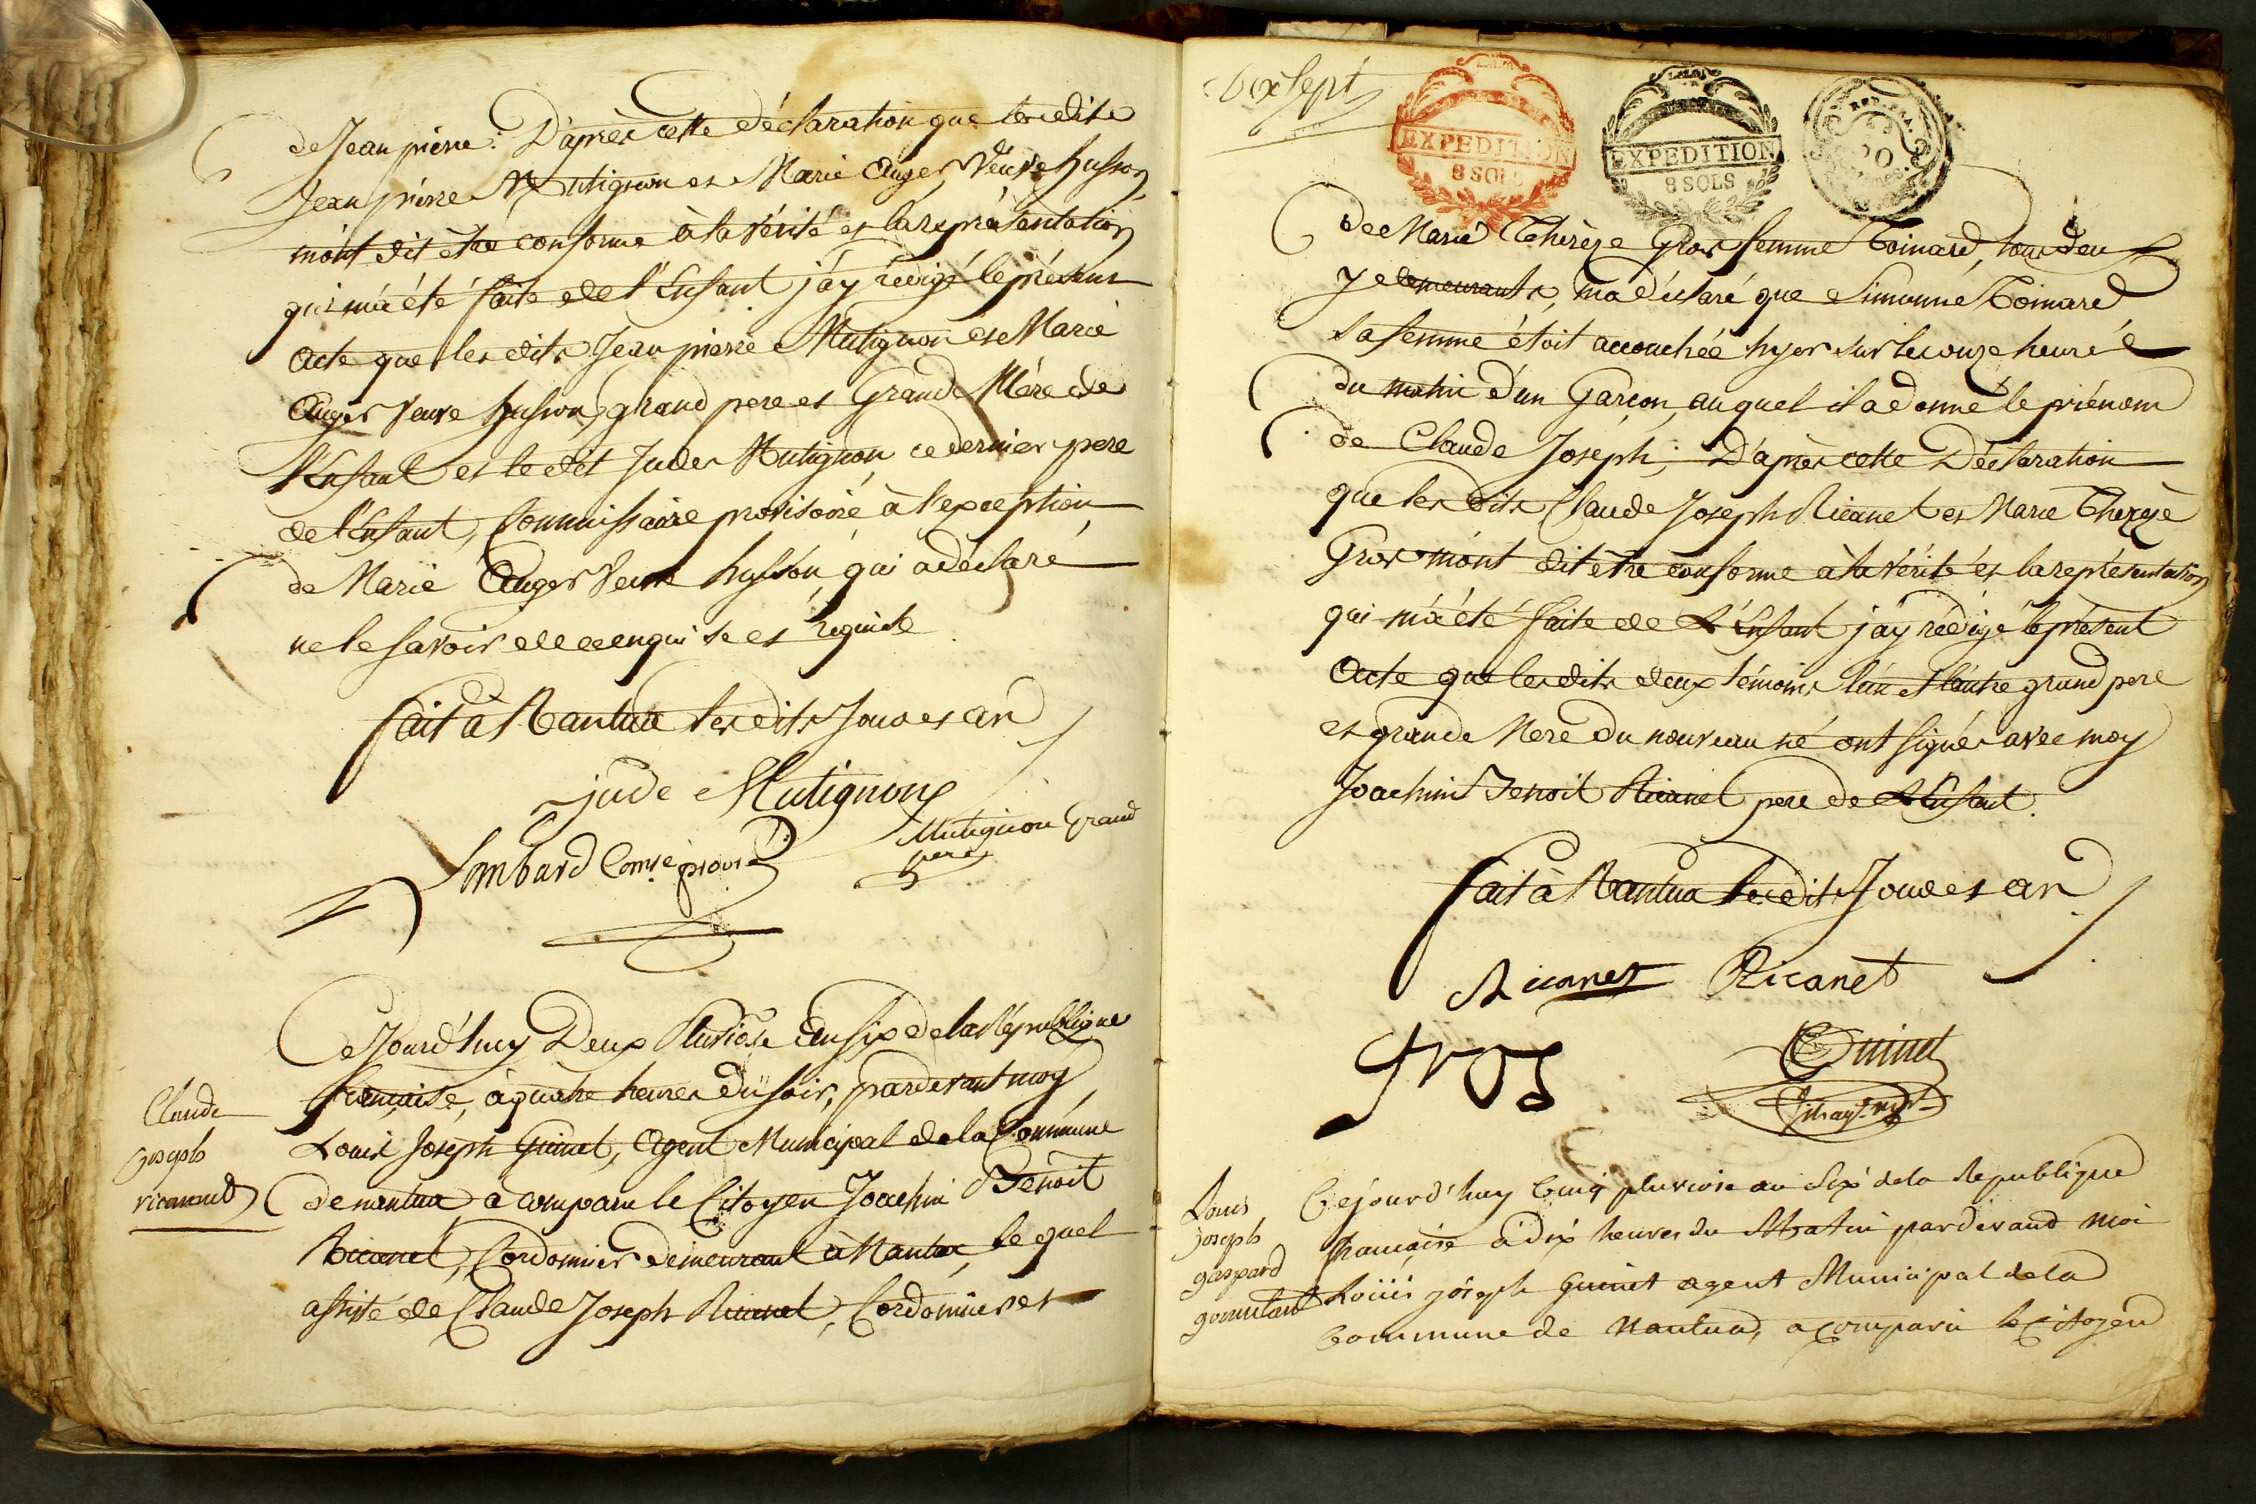 de Jean pierre. D'après cette déclaration que lesdits
Jean pierre Mutignon et Marie Auger Veuve husson
m'ont dit être conforme à la vérité et la représentation
qui m'a été faite de l'Enfant j'ay rédigé le présent
Acte que les dits Jean pierre Mutignon et Marie
Auger Veuve husson, grand pere et Grande Mére de
l'Enfant et le dit Jude Mutignon ce dernier pere
de l'Enfant, Commissaire provisoire à l'exception
de Marie Auger Veuve husson, qui a déclaré
ne le savoir de ce enquise et requise
fait à Nantua lesdits Jour et an
jude Mutignon
Mutignon Grand
pere
Lombard Comre provre
Claude
joseph
ricannet
Cejourd'huy Deux Pluviose an six de la République
française, à quatre heures du soir, pardevant moy
Louis Joseph Guinet, Agent Municipal de la Commune
de nantua a comparu le Citoyen Joachim Benoit
Ricanet, Cordonnier demeurant à Nantua, le quel
assisté de Claude Joseph Ricanet, Cordonnier et
dix sept
EXPEDITION
8 SOLS
EXPEDITION
8 SOLS
REP. FRA.
20
de Marie Thérèze Gros femme Toinard, tous deux
y demeurants, m'a déclaré que Simonne Toinard
sa femme étoit accouchée hyer sur les onze heures
du matin d'un Garçon, auquel il a donné le prénom
de Claude Joséph; D'après cette Déclaration
que les dits Claude Joseph Ricanet et Marie Thérèze
Gros m'ont dit être conforme à la vérité et la représentation
qui m'a été faite de L'Enfant j'ay rédigé le présent
Acte que les dits deux témoins l'un et l'autre grand pere
et grande Mere du nouveau né ont signé avec moy
Joachim Benoit Ricanet pere de L'Enfant.
fait à Nantua lesdits Jour et an
Ricanet Ricanet
gros
Guinet
Louis
joseph
gaspard
Cejourd'huy Cinq pluviose an Six de la Republique
française à dix heures du Matin pardevand moi
Louis joseph guinet agent Municipal de la
Commune de Nantua, a comparu le Citoyen